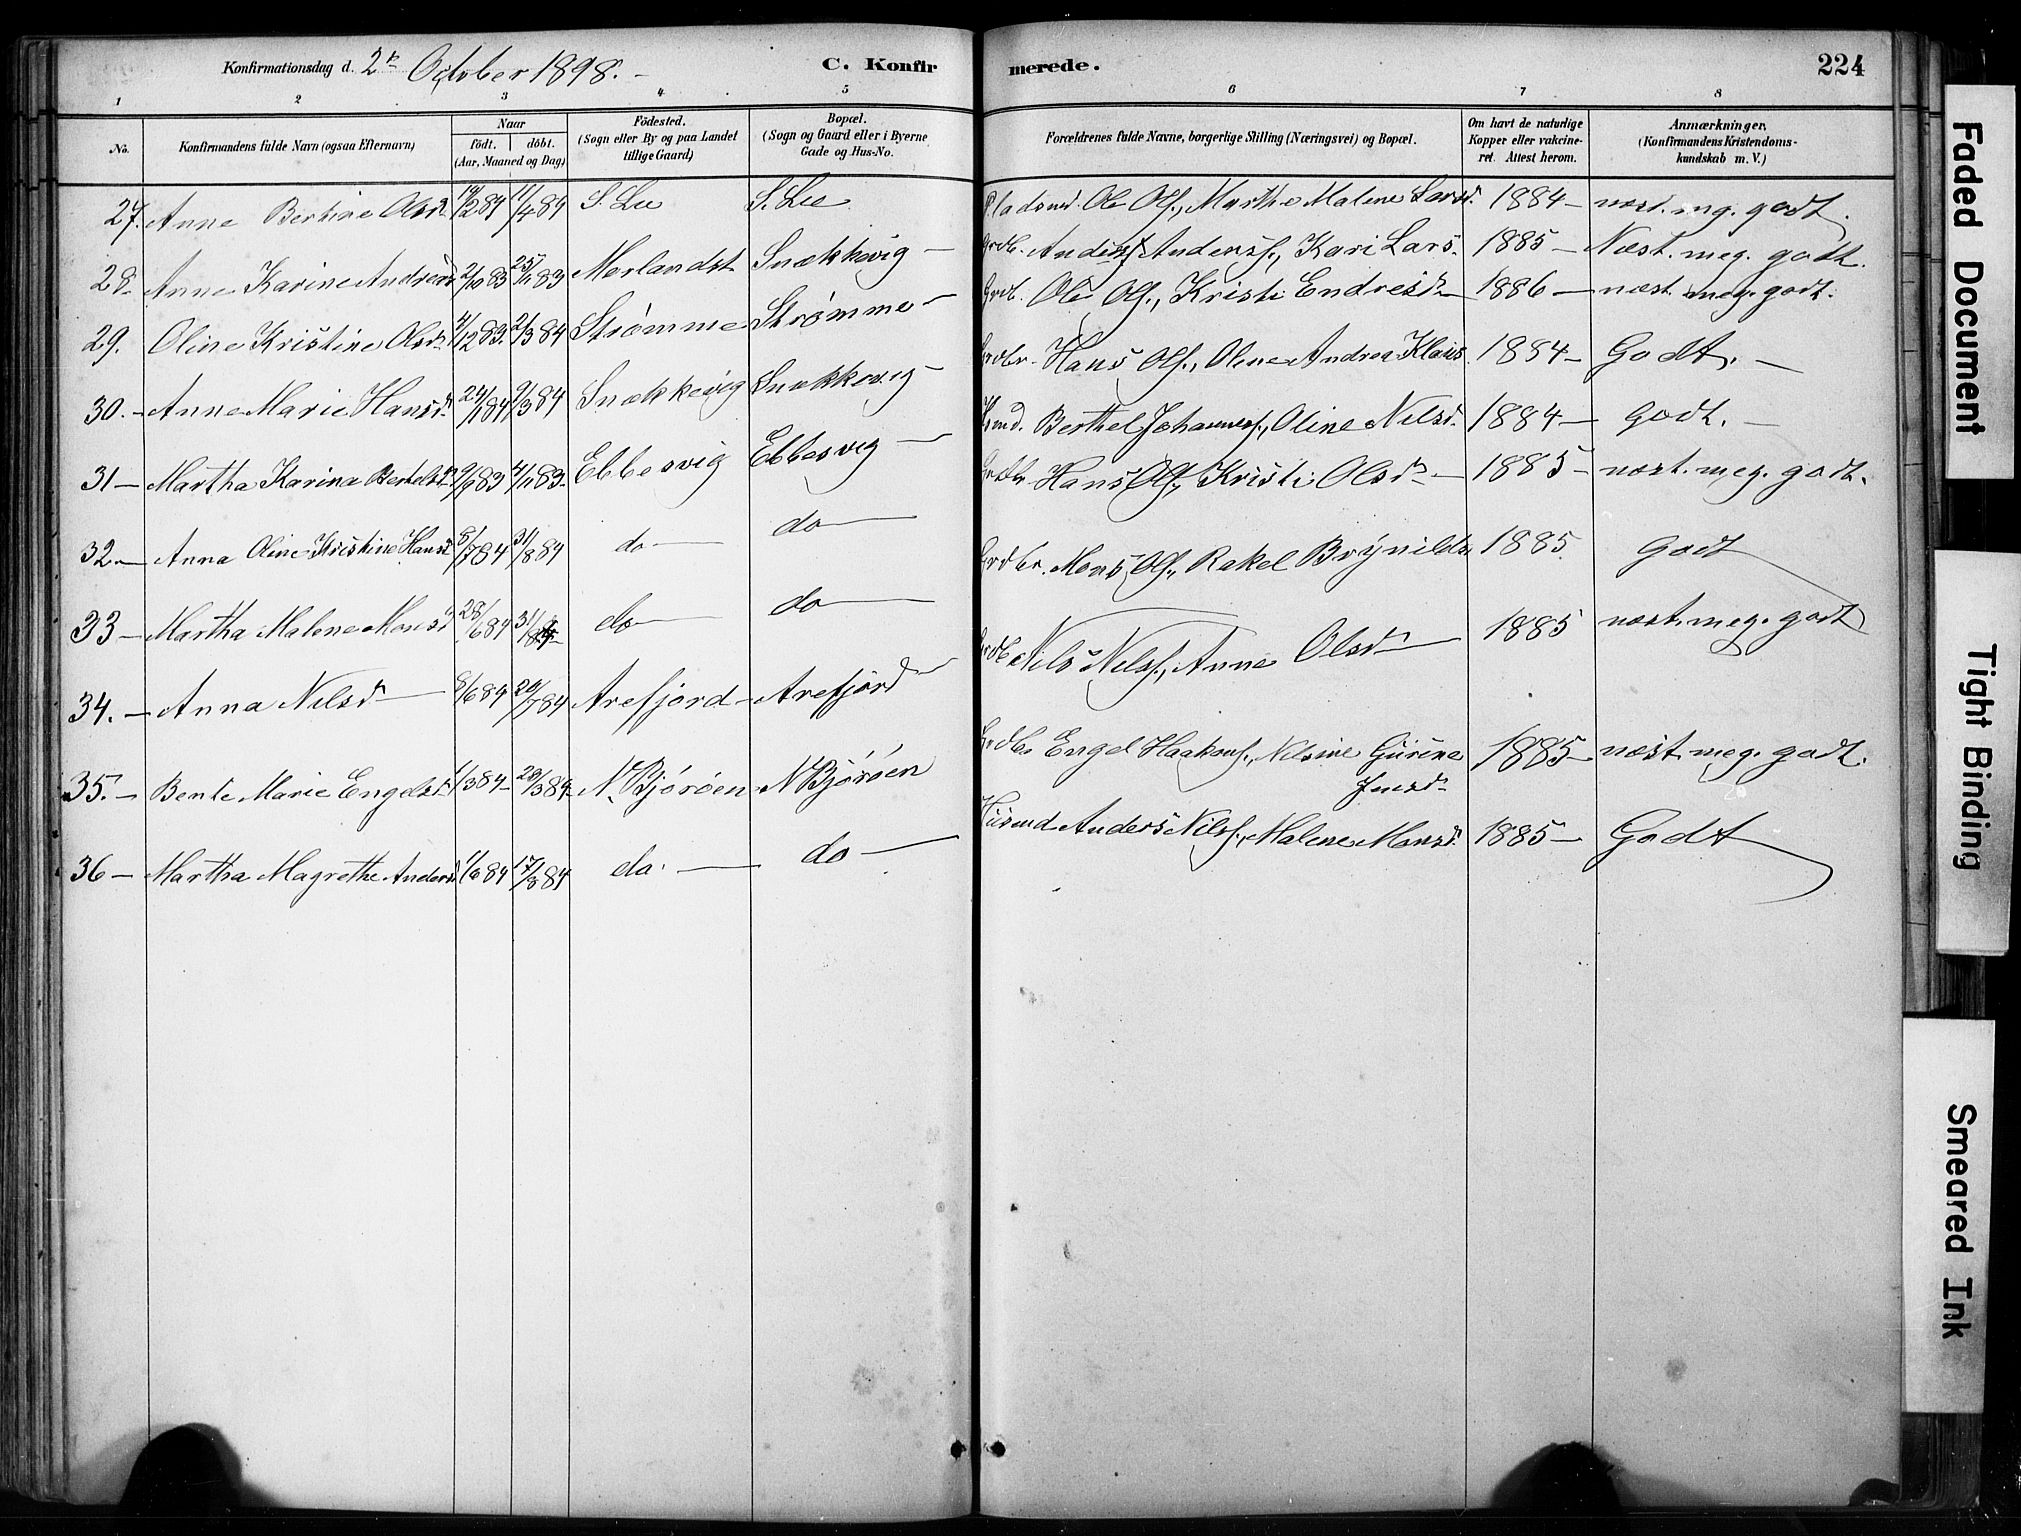 Konfirmationsdag d. 2de October 1898. C. Konfirmerede. 224
1 2 3 4 5 6 7 8
No. Konfirmandens fulde Navn (ogsaa Efternavn) Naar Födt. döbt. (Aar, Maaned og Dag) Födested. (Sogn eller By og paa Landet tillige Gaard) Bopæl. (Sogn og Gaard eller i Byerne Gade og Hus-No. Forældrenes fulde Navne, borgerlige Stilling (Næringsvei) og Bopæl. Om havt de naturlige Kopper eller vakcineret. Attest herom. Anmærkninger. (Konfirmandens Kristendomskundskab m. V.)
27. Anne Bertine Olsd 14/2 84 11/4 84 S. Lie S. Lie Pladsmd. Ole Ols., Marthe Malene Larsd. 1884 - næst. mg. godt.
28. Anne Karine Andersd 2/10 83 25/11 83 Morlandst Snækkevig - Grdb. Anders Anders., Kari Lars. 1885 - Næst. meg. godt.
29. Oline Kristine Olsd 4/12 83. 2/3 84 Strømme Strømme - Grdb. Ole Ols., Kristi Endresd - 1886 - næst meg. godt.
30. - Anne Marie Hansd 24/1 84 9/3 84 Snækkevig Snækkevig - Grdbr. Hans Ols., Oline Andrea Klaus. 1884 - Godt. -
31 - Martha Karina Bertelsd 9/9 83 4/11 83 - Ebbesvig Ebbesvig - Hsmd. Berthel Johanness., Oline Nilsd. 1884 - godt. -
32. - Anna Oline Kristine Hansd 8/7 84 31/8 84 do - do - Grdbr Hans Ols., Kristi Olsd - 1885 - næst. meg. godt.
33 - Martha Malene Monsd 28/6 84 31/8 84 do - do - Grdbr. Mons Ols., Rakel Brynilds 1885 godt
34. - Anna Nilsd - 8/6 84 20/7 84 Arefjord - Arefjord - Grdb Nils Nels., Anne Olsd - 1885 næst. meg. godt
35. - Bente Marie Engelsd 1/3 84 - 23/3 84 - N. Björöen - N Björöen Grdbr Engel Haakons., Nilsine Gurine Jensd - 1885 - næst meg. godt.
36 - Martha Magrethe Andersd 1/3 84 17/3 84 do. - do - Husmd Anders Nils., Malene Monsd. 1885 - Godt
Faded Document
Tight Binding
Smeared Ink